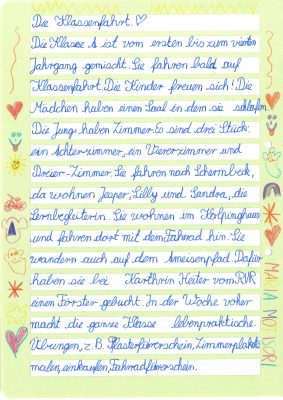 Die Klassenfahrt. ♡
Die Klasse A ist vom ersten bis zum vierten
Jahrgang gemischt. Sie fahren bald auf
Klassenfahrt. Die Kinder freuen sich! Die
Mädchen haben einen Saal in dem sie schlafen.
Die Jungs haben Zimmer. Es sind drei Stück:
ein Achterzimmer, ein Viererzimmer und
Dreier-Zimmer. Sie fahren nach Schermbeck,
da wohnen Jesper, Lilly und Sandra, die
Lernbegleiterin. Sie wohnen im Kolpinghaus
und fahren dort mit dem Fahrad hin. Sie
wandern auch auf dem Ameisenpfad. Dafür
haben sie bei Karthrin Heiter vom RVR
einen Förster gebucht. In der Woche voher
macht die ganze Klasse lebenpraktische
Übungen, z.B. Pflasterführerschein, Zimmerplakate
malen, einkaufen, Fahradführerschein.
MARIA MOTISORI